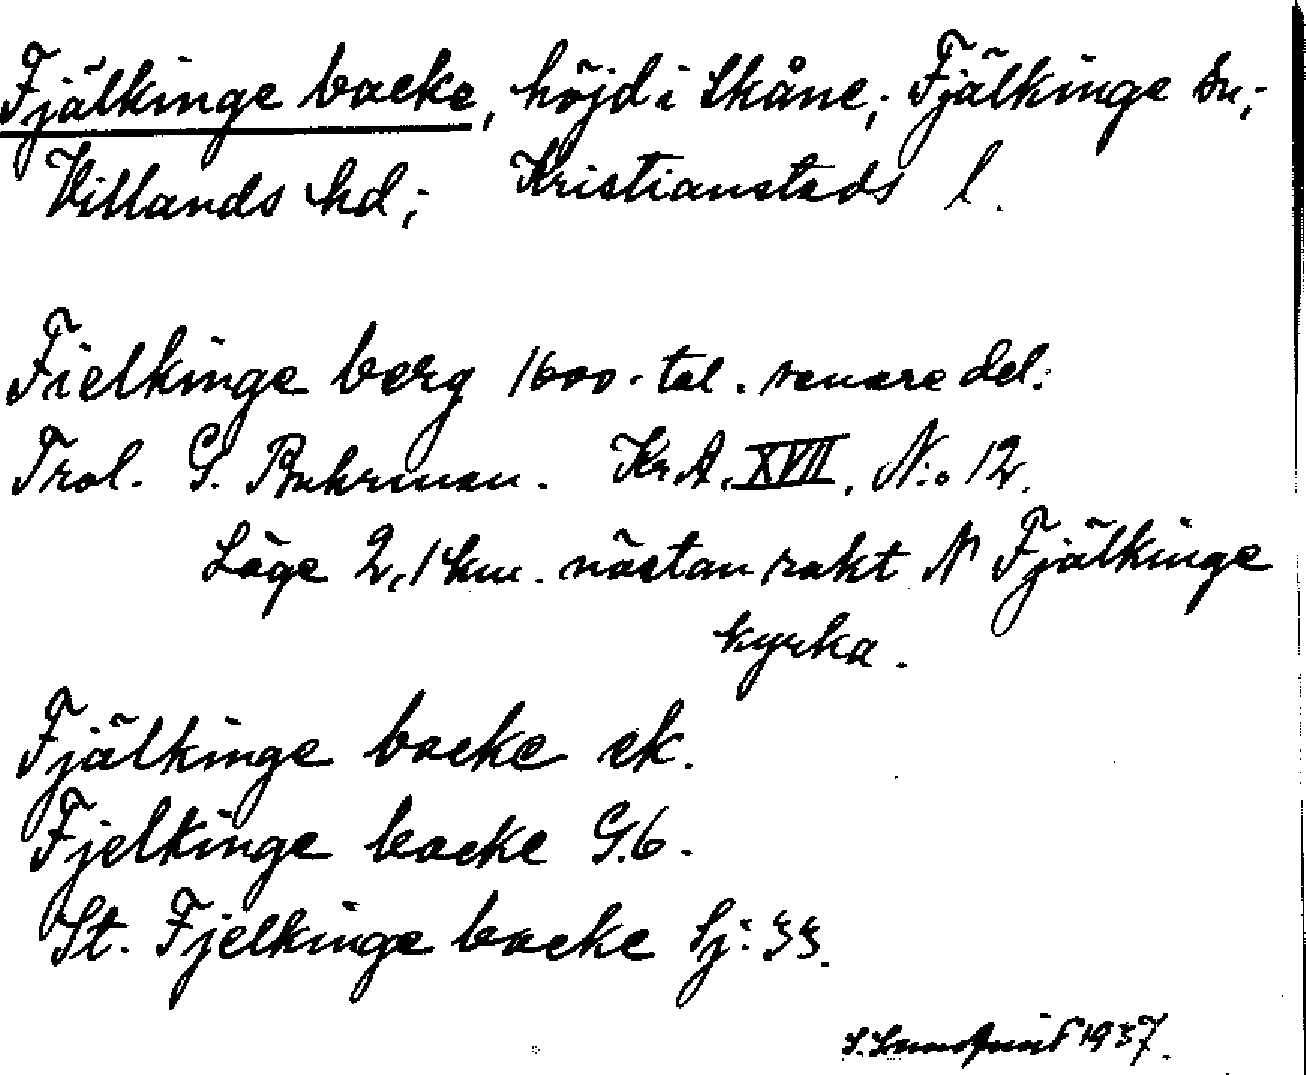 Fjälkinge backe, höjd i Skåne; Fjälkinge sn;
Villands hd; Kristianstads l.
Fielkinge berg 1600-tal. senare del.
Trol. G. Buhrman. Kr.A. XVII, N:o 12.
Läge 2,1 km. nästan rakt N Fjälkinge
kyrka.
Fjälkinge backe ek.
Fjelkinge backe G.6.
St. Fjelkinge backe Sj: 33.
S. Lundquist 1937.